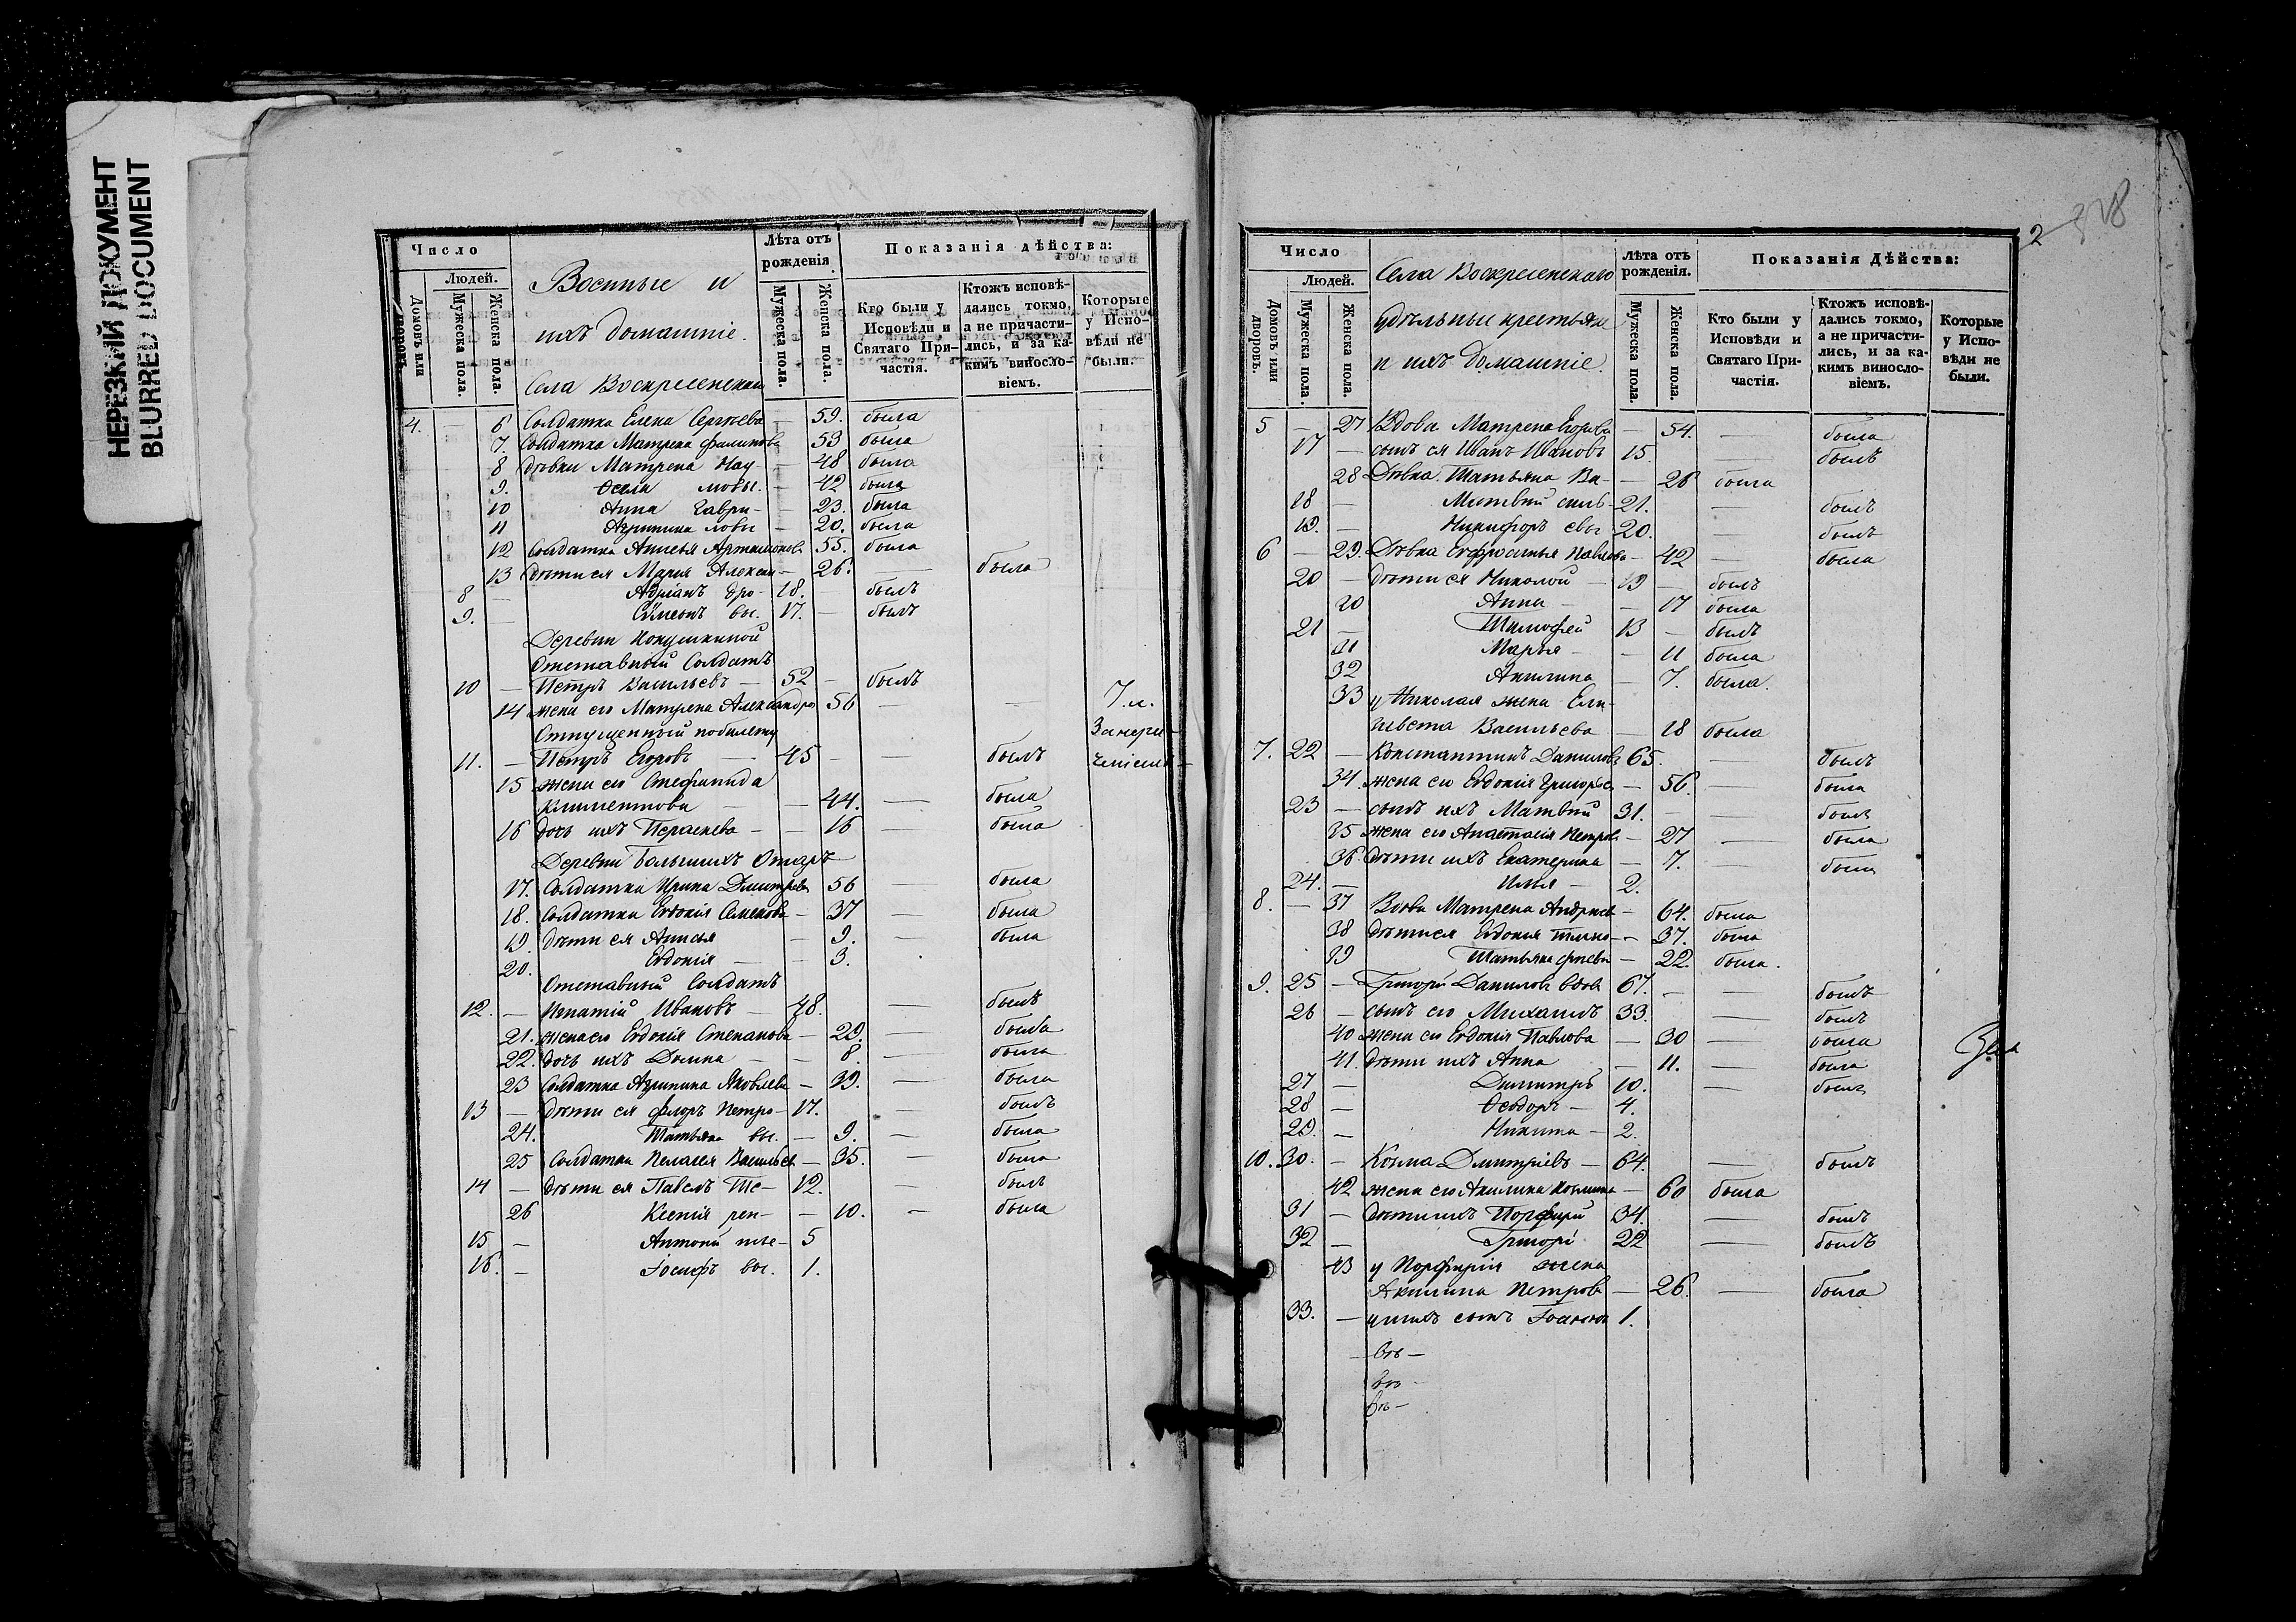 НЕРЕЗКИЙ ДОКУМЕНТ
BLURRED DOCUMENT
Число
Людей.
Домовъ или дворовъ.
Мужеска пола.
Женска пола.
Военные и
ихъ домашніе.
Села Воскресенскаго
Лѣта отъ рожденія.
Мужеска пола.
Женска пола.
Показанія дѣйства:
Кто были у Исповѣди и Святаго При-частія.
Ктожъ исповѣ-дались токмо, а не причасти-лись, и за ка-кимъ винословіемъ.
Которые у Испо-вѣди не были.
4. — 6 Солдатка Елена Сергѣева — 59. была
7. Солдатка Матрена Филипова 53 была
8 дѣвки Матрена Нау- — 48 была
9. Ѳекла мовы. — 42 была
10 Анна Гаври- — 23. была
11 Агрипина ловы — 20. была
12 Солдатка Анисья Артамонова 55. была
13 дѣти ея Марья Алексан- — 26. — была
8 — Адріанъ дро- 18. — былъ
9. — Сѵмеонъ вы. 17. — былъ
Деревни Кокушкиной
Отставный Солдатъ
10 — Петръ Васильевъ — 52 — былъ
14 жена его Матрена Александро 56 — — 7.л.
Отпущенный по билету
11. — Петръ Егоровъ — 45 — — былъ
15 жена его Стефанида
Климентова — — 44. — была
16 дочь ихъ Параскева — — 16 — была
Деревни Большихъ Отаръ
17. Солдатка Ирина Дмитрева 56 — была
18. Солдатка Евдокія Семенова — 37 — была
19. дѣти ея Анисья — 9. — была
20. Евдокія — — 3.
Отставный Солдатъ
12. — Ипатій Ивановъ — 48. — былъ
21. жена его Евдокія Степанова — 29. — была
22. дочь ихъ Домна — — 8. — была
23 Солдатка Агрипина Яковлева — 39. — была
13 — дѣти ея Флоръ Петро- 17. — былъ
24. Татьяна вы. — 9. — была
25 Солдатка Пелагея Васильева — 35. — была
14 — дѣти ея Павелъ Те- 12. — былъ
26 Ксенія рен- — 10. — была
15 — Антоній тье- 5
16. — Іосифъ вы. 1.
2
328
Число
Людей.
Домовъ или дворовъ.
Мужеска пола.
Женска пола.
Села Воскресенскаго
удѣльные крестьяне
и ихъ домашніе.
Лѣта отъ рожденія.
Мужеска пола.
Женска пола.
Показанія Дѣйства:
Кто были у Исповѣди и Святаго При-частія.
Ктожъ исповѣ-дались токмо, а не причасти-лись, и за ка-кимъ винословіемъ.
Которые у Испо-вѣди не были.
5 — 27 Вдова Матрена Егорова — 54. — была
17 — сынъ ея Иванъ Ивановъ 15. — былъ
28 Дѣвка Татьяна Ва- — 26 была
18 — Матвей силь- 21. — былъ
19. — Никифоръ евы 20. — былъ
6 — 29. Дѣвка Евфросинья Павлова — 42 — была
20 — дѣти ея Николай — 19 — былъ
30 Анна — — 17 была
21 — Тимофей 13 — былъ
31 Марья — — 11 была
32 Акилина — 7. была.
33 у Николая жена Ели-
савета Васильева — 18 была
7. 22 — Константинъ Даниловъ 65. — былъ
34. жена его Евдокія Григорьева — 56. — была
23 — сынъ ихъ Матвей 31. — былъ
35 жена его Анастасія Петрова — 27 — была
36. дѣти ихъ Екатерина — 7. — была
24. — Илья — 2.
8. — 37 Вдова Матрена Андреева — 64. была
38 дѣти ея Евдокія Тимо- — 37. была
39 Татьяна фѣевы — 22. была.
9. 25 — Григорій Даниловъ вдовъ 67. — былъ
26 — сынъ его Михаилъ 33. — былъ
40 жена его Евдокія Павлова — 30 — была
41. дѣти ихъ Анна — 11. — была
27 — Димитрій 10. — былъ
28 — Ѳеодоръ — 4.
29. — Никита — 2.
10. 30. — Козма Дмитріевъ — 64. — былъ
42 жена его Акилина Козмина — 60 была
31 — дѣти ихъ Порфирій 34. — былъ
32 — Григорій 22 — былъ
43 у Порфирія жена
Акилина Петрова — 26. — была
33. — у нихъ сынъ Іоаннъ 1.